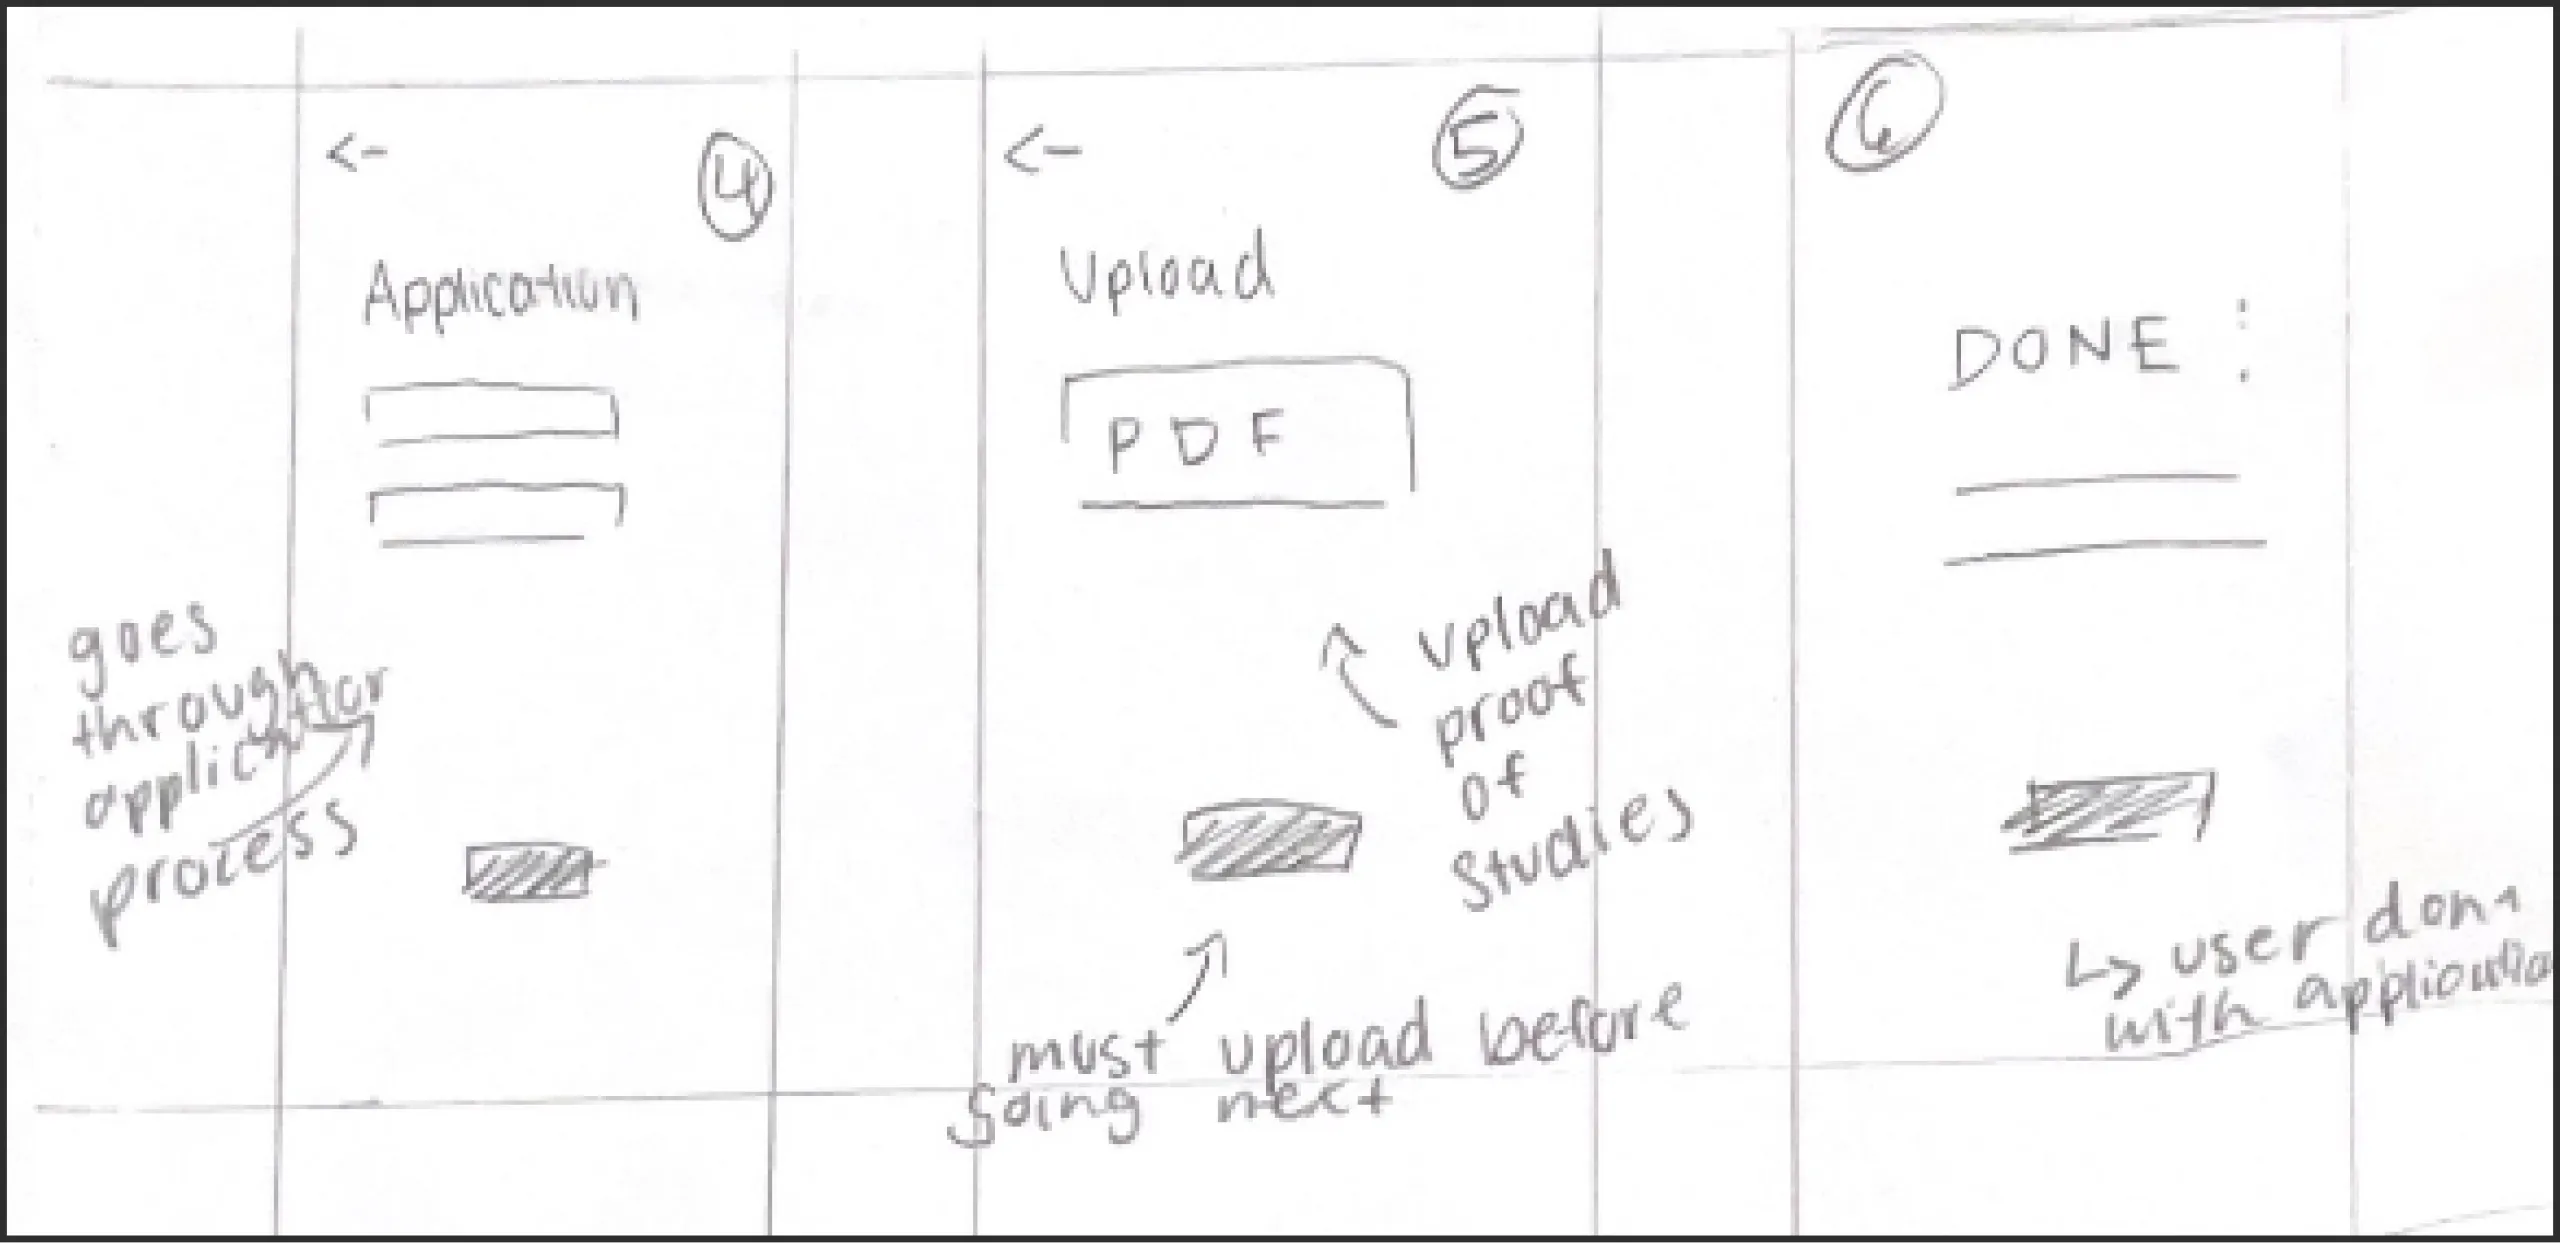 4
Application
goes
through
application
process
5
Upload
PDF
upload
proof
of
studies
must upload before
going next
6
DONE
user done
with applicatio